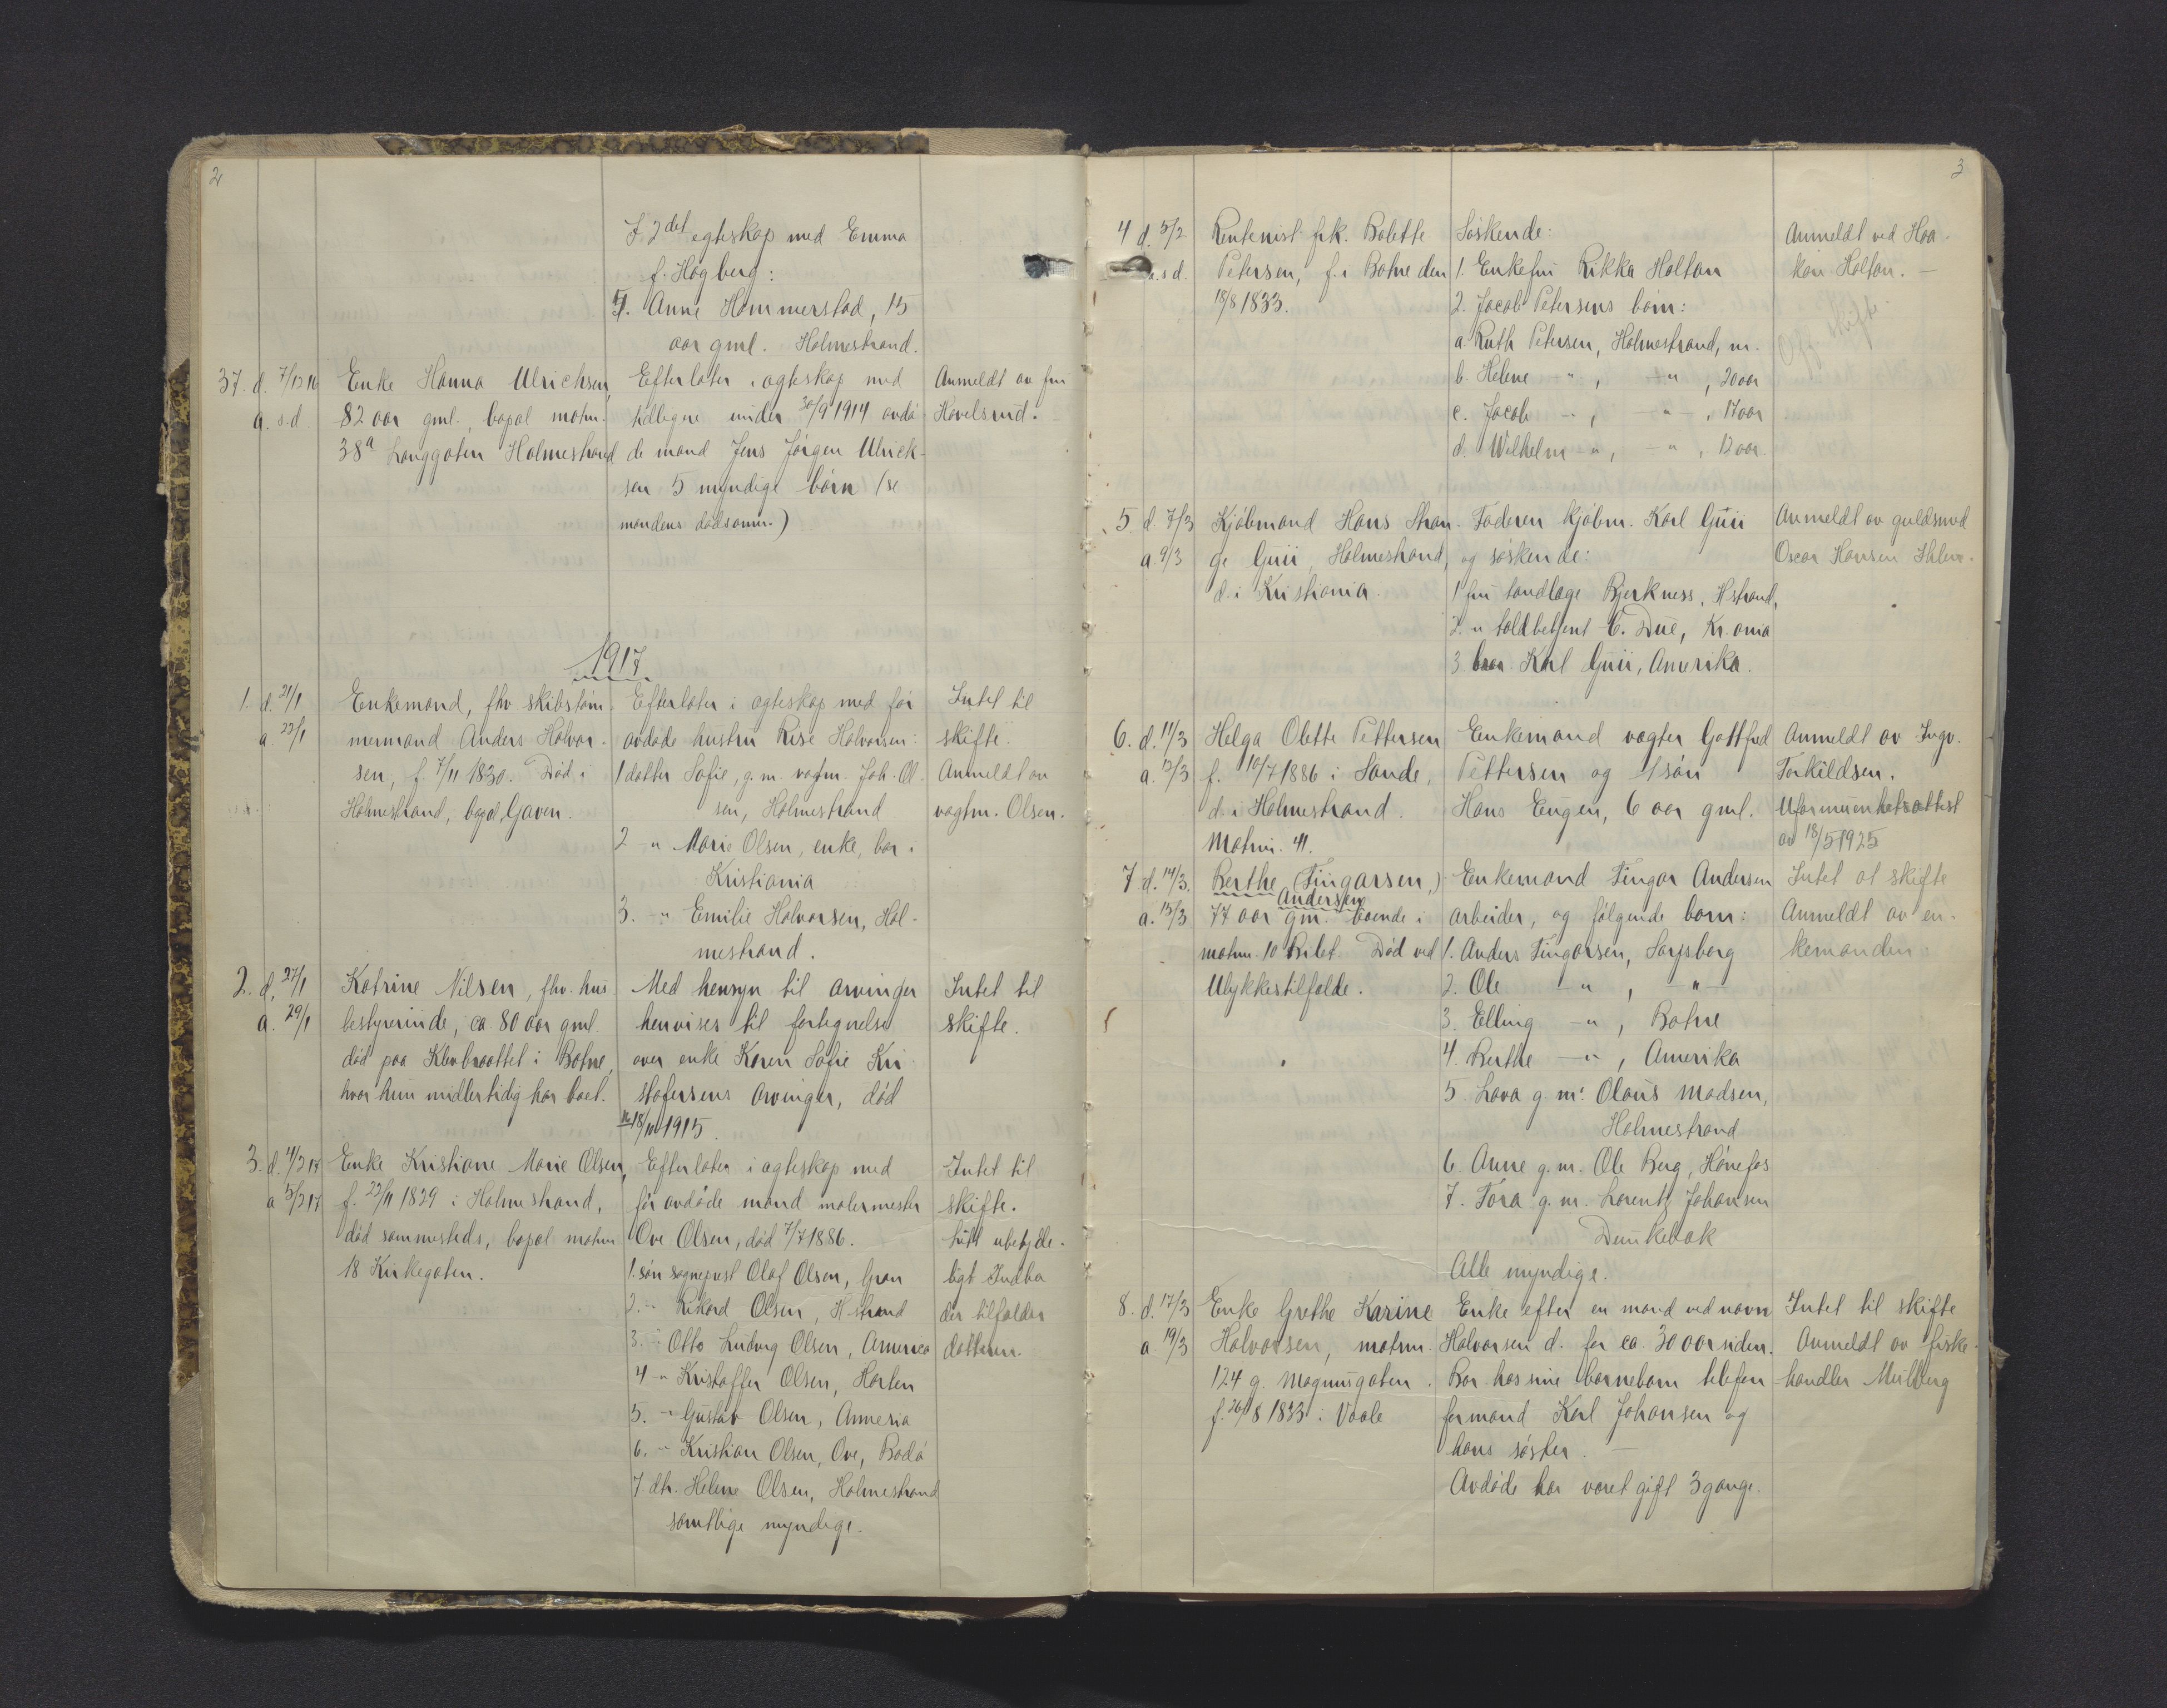 2
I 2det egteskap med Emma
f. Høgberg:
4. Anne Hammerstad, 15
aar gml. Holmestrand.
37. d. 7/12 16
a. s.d.
Enke Hanna Ulrichsen,
82 aar gml., bopæl matrn.
38a Langgaten Holmestrand
Efterlater i egteskap med
tidligere under 30/9 1914 avdø-
de mand Jens Jørgen Ulrick-
sen 5 myndige børn (se
mandens dødsanm.)
Anmeldt av fru
Havelsrud.
1917
1. d. 21/1
a. 22/1
Enkemand, fhv skibstøm-
mermand Anders Halvor-
sen, f. 7/11 1830. Død i
Holmestrand, bopæl, Gaven.
Efterlater i egteskap med før
avdøde hustru Rise Halvorsen:
1 datter Sofie, g. m. vagtm. Joh. Ol-
sen, Holmestrand
2 -"- Marie Olsen, enke, bor i
Kristiania
3. -"- Emilie Halvorsen, Hol-
mestrand.
Intet til
skifte.
Anmeldt av
vagtm. Olsen.
2. d. 27/1
a. 29/1
Katrine Nilsen, fhv. hus
bestyrerinde, ca 80 aar gml.
død paa Klevbraattet i Botne,
hvor hun midlertidig har boet.
Med hensyn til arvinger
henvises til fortegnelse
over enke Karen Sofie Kri
stofersens arvinger, død
18/10 1915.
Intet til
skifte.
3. d. 4/2 17
a 5/2 17
Enke Kristiane Marie Olsen,
f. 22/11 1829 i Holmestrand,
død sammesteds, bopæl matrn
18 Kirkegaten.
Efterlater i egteskap med
før avdøde mand malermester
Ove Olsen, død 7/7 1886.
1. søn sogneprest Olaf Olsen, Gran
2. -"- Rikard Olsen, H.strand
3. -"- Otto Ludvig Olsen, America
4 -"- Kristoffer Olsen, Horten
5. -"- Gustav Olsen, Ameria
6. -"- Kristian Olsen, Ove, Bodø
7 dtr. Helene Olsen, Holmestrand
samtlige myndige.
Intet til
skifte.
Litt ubetyde-
ligt Indbo
der tilfalder
datteren.
3
4 d. 5/2
a. s.d.
Rentenist frk. Bolette
Petersen, f. i Botne den
18/8 1833.
Søskende:
1. Enkefru Rikka Holtan
2. Jacob Petersens børn:
a. Ruth Petersen, Holmestrand, m.
b. Helene -"-, -"-, 20 aar
c. Jacob -"-, -"-, 17 aar
d. Wilhelm -"-, -"-, 12 aar.
Anmeldt ved Haa-
kon Holtan. -
Off skifte
5 d. 7/3
a 9/3
Kjøbmand Hans Stran-
ge Guii, Holmestrand,
d. i Kristiania.
Faderen kjøbm. Karl Guii
og søskende:
1 fru tandlæge Bjerkness, H.strand,
2. -"- toldbetjent C. Due, Kr.ania
3. bror Karl Guii, Amerika.
Anmeldt av guldsmed
Oscar Hansen
6. d. 11/3
a. 12/3
Helga Olette Pettersen
f. 10/7 1886 i Sande,
d. i Holmestrand.
Matrn. 41.
Enkemand vagter Gottfred
Pettersen og 1 søn
Hans Eugen, 6 aar gml.
Anmeldt av Ingv.
Torkildsen.
Uformuenhetsattest
av 18/5 1925
7 d. 14/3.
a. 15/3
Berthe (Tingarsen,)
Andersen
77 aar gm. boende i
matrn. 10 Bilet. Død ved
Ulykkestilfælde.
Enkemand Tingar Andersen
arbeider, og følgende barn:
1. Anders Tingarsen, Sarpsborg
2. Ole -"-, -"-
3. Elling -"-, Botne
4. Berthe -"-, Amerika
5 Lava g. m. Olaus Madsen,
Holmestrand
6. Anne g. m. Ole Berg, Hønefos
7. Tora g. m. Lorentz Johansen
Dunkebæk
Alle myndige.
Intet at skifte
Anmeldt av en-
kemanden.
8. d. 17/3
a. 19/3
Enke Grethe Karine
Halvorsen, matrn.
124 g. Magnusgaten.
f. 26/8 1833 i Vaale
Enke efter en mand ved navn
Halvorsen d. for ca. 30 aar siden.
Bor hos sine barnebarn telefon
formand Karl Johansen og
hans søster. -
Avdøde har været gift 3 gange.
Intet til skifte
Anmeldt av fiske-
handler Mulberg